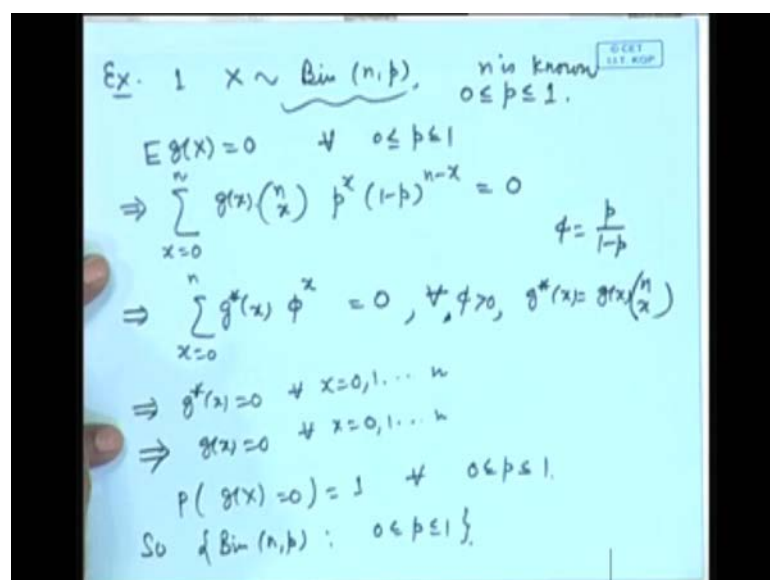 Ex. 1 X ~ Bin (n, p), n is known
0 ≤ p ≤ 1.
E g(X) = 0 ∀ 0 ≤ p ≤ 1
⇒ ∑_{x=0}^{n} g(x) (n x) p^x (1-p)^{n-x} = 0
ϕ = p/(1-p)
⇒ ∑_{x=0}^{n} g*(x) ϕ^x = 0, ∀ ϕ>0, g*(x) = g(x) (n x)
⇒ g*(x) = 0 ∀ x=0,1... n
⇒ g(x) = 0 ∀ x=0,1... n
P( g(X) = 0) = 1 ∀ 0 ≤ p ≤ 1.
So { Bin (n, p) : 0 ≤ p ≤ 1 }.